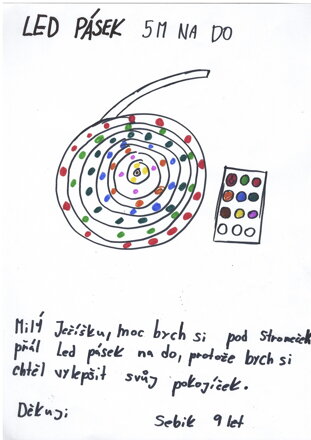 LED PÁSEK 5M NA DO
Milý Ježíšku, moc bych si pod stromeček
přál Led pásek na do, protože bych si
chtěl vylepšit svůj pokojíček.
Děkuji
Sebik 9 let